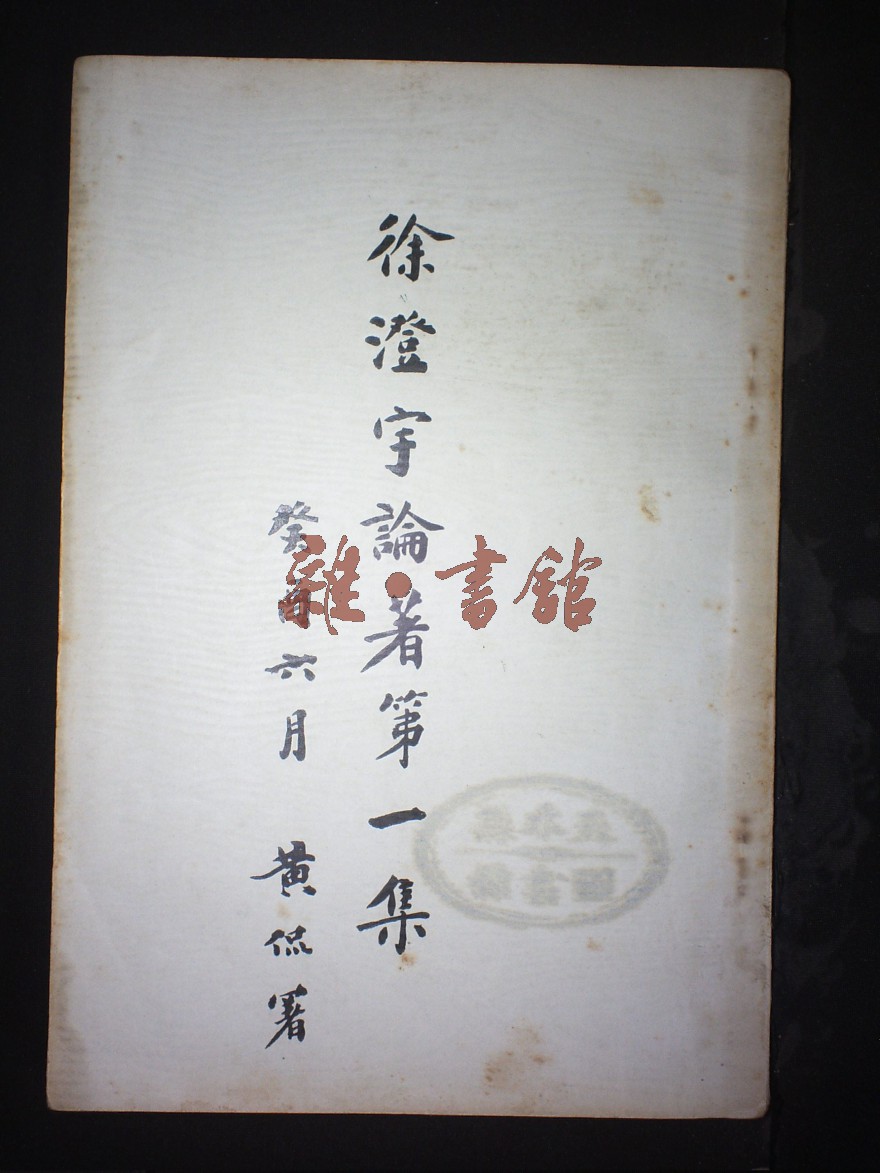 徐澄宇論著第一集
癸酉六月 黃侃署
雜·書館